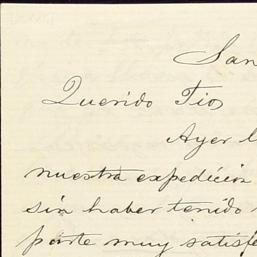 San
Querido Tio
Ayer l
nuestra expedición
sin haber tenido
parte muy satisfe